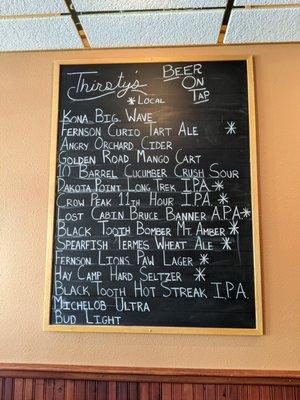 Thirsty's
Beer
On
Tap
* Local
Kona Big Wave
Fernson Curio Tart Ale *
Angry Orchard Cider
Golden Road Mango Cart
10 Barrel Cucumber Crush Sour
Dakota Point Long Trek IPA *
Crow Peak 11th Hour IPA *
Lost Cabin Bruce Banner APA *
Black Tooth Bomber Mt. Amber *
Spearfish Termes Wheat Ale *
Fernson Lions Paw Lager *
Hay Camp Hard Seltzer *
Black Tooth Hot Streak I.P.A.
Michelob Ultra
Bud Light